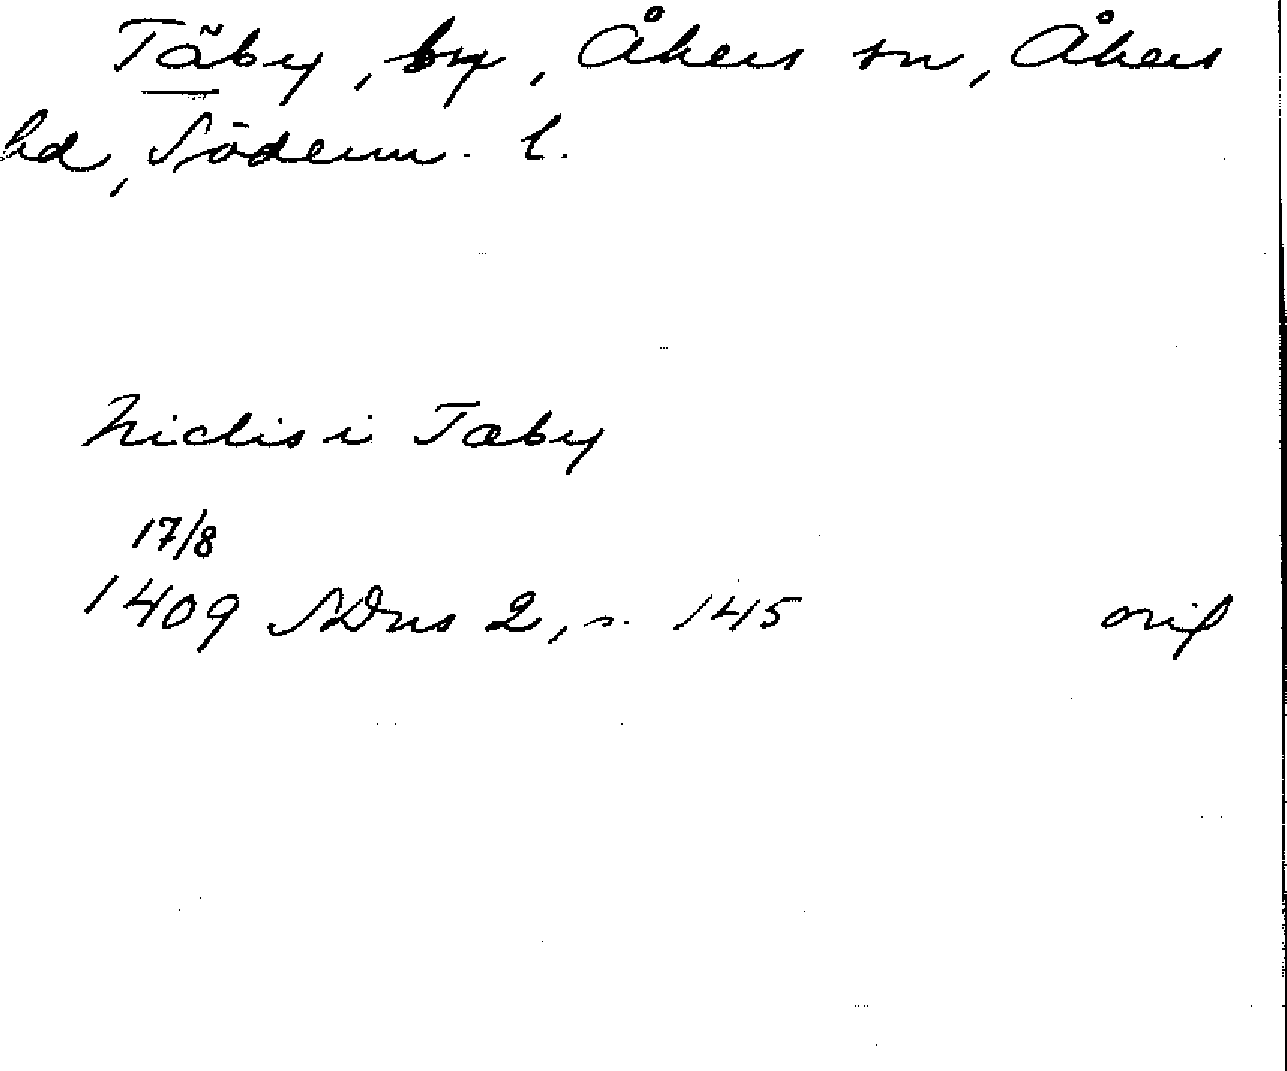 Täby, by, Åkers sn, Åkers
hd, Söderm. l.
Niclis i Tæby
17/8
1409 SDns 2, s. 145 orig